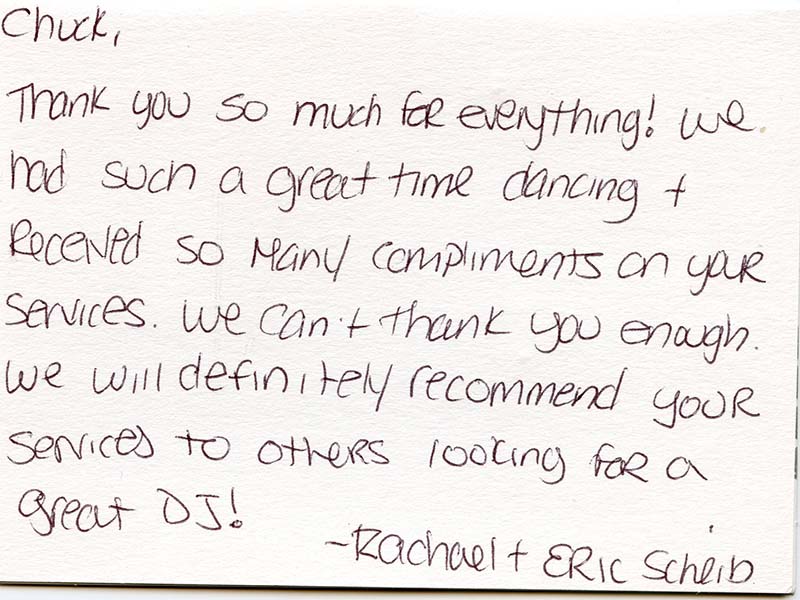 Chuck,
Thank you so much for everything! We
had such a great time dancing +
Received so many compliments on your
services. We can't thank you enough.
We will definitely recommend your
services to others looking for a
great DJ!
-Rachael + Eric Scheib